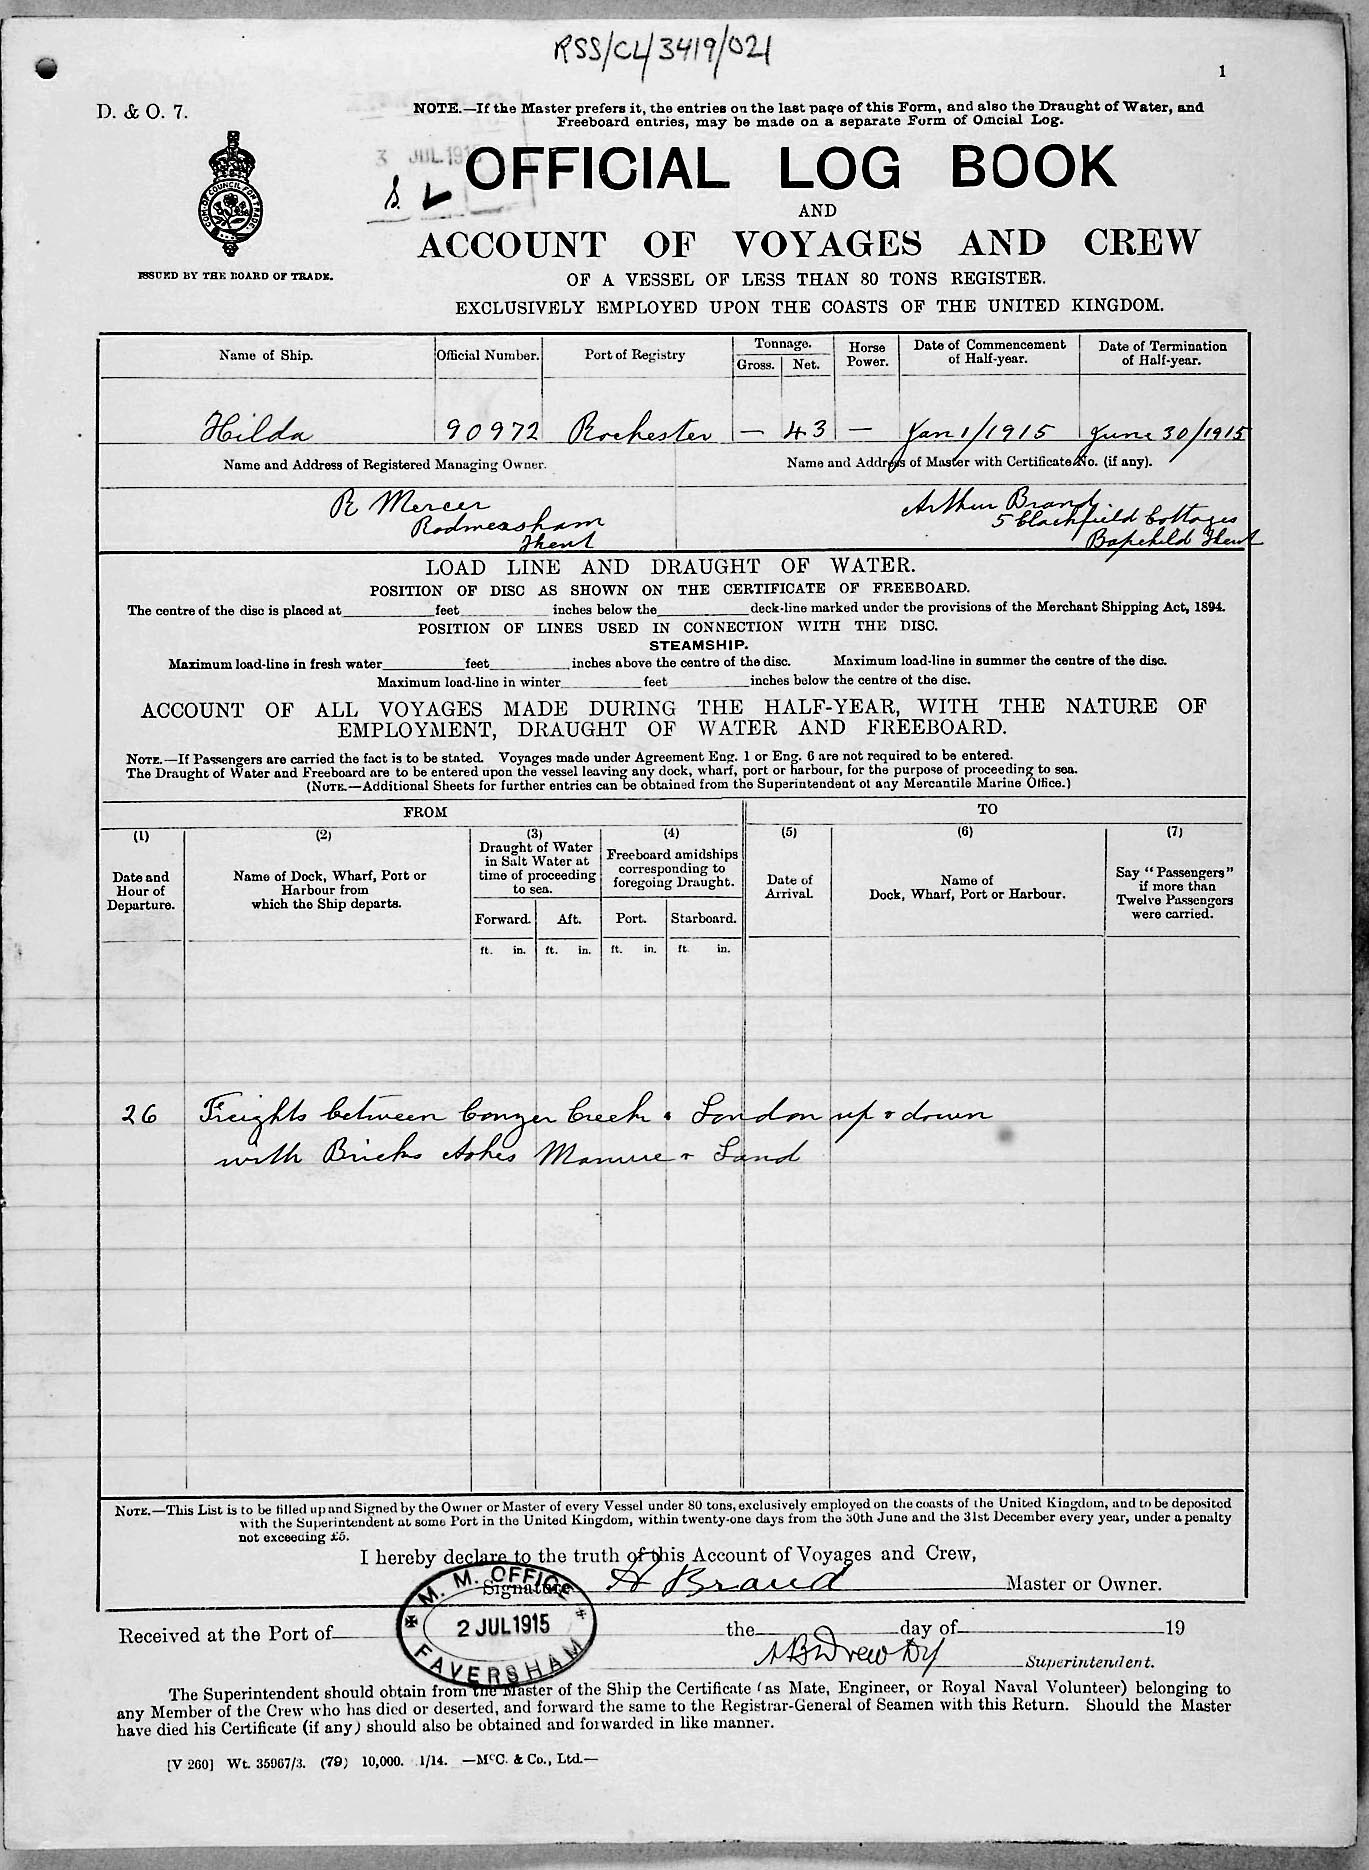 RSS/CL/3419/021
1
D. & O. 7.
NOTE.—If the Master prefers it, the entries on the last page of this Form, and also the Draught of Water, and
Freeboard entries, may be made on a separate Form of Official Log.
3 JUL.1915
OFFICIAL LOG BOOK
AND
ACCOUNT OF VOYAGES AND CREW
OF A VESSEL OF LESS THAN 80 TONS REGISTER.
EXCLUSIVELY EMPLOYED UPON THE COASTS OF THE UNITED KINGDOM.
COM. OF COUNCIL FOR TRADE
ISSUED BY THE BOARD OF TRADE.
Name of Ship. Official Number. Port of Registry Tonnage. Gross. Net. Horse Power. Date of Commencement of Half-year. Date of Termination of Half-year.
Hilda 90972 Rochester — 43 — Jan 1/1915 June 30/1915
Name and Address of Registered Managing Owner. Name and Address of Master with Certificate No. (if any).
R Mercer Arthur Brand
Rodmersham 5 Cottages
Kent Bapchild Kent
LOAD LINE AND DRAUGHT OF WATER.
POSITION OF DISC AS SHOWN ON THE CERTIFICATE OF FREEBOARD.
The centre of the disc is placed at feet inches below the deck-line marked under the provisions of the Merchant Shipping Act, 1894.
POSITION OF LINES USED IN CONNECTION WITH THE DISC.
STEAMSHIP.
Maximum load-line in fresh water feet inches above the centre of the disc. Maximum load-line in summer the centre of the disc.
Maximum load-line in winter feet inches below the centre of the disc.
ACCOUNT OF ALL VOYAGES MADE DURING THE HALF-YEAR, WITH THE NATURE OF
EMPLOYMENT, DRAUGHT OF WATER AND FREEBOARD.
NOTE.—If Passengers are carried the fact is to be stated. Voyages made under Agreement Eng. 1 or Eng. 6 are not required to be entered.
The Draught of Water and Freeboard are to be entered upon the vessel leaving any dock, wharf, port or harbour, for the purpose of proceeding to sea.
(NOTE.—Additional Sheets for further entries can be obtained from the Superintendent of any Mercantile Marine Office.)
FROM TO
(1) (2) (3) (4) (5) (6) (7)
Date and Hour of Departure.
Name of Dock, Wharf, Port or Harbour from which the Ship departs.
Draught of Water in Salt Water at time of proceeding to sea.
Freeboard amidships corresponding to foregoing Draught.
Date of Arrival.
Name of Dock, Wharf, Port or Harbour.
Say "Passengers" if more than Twelve Passengers were carried.
Forward. Aft. Port. Starboard.
ft. in. ft. in. ft. in. ft. in.
26 Freights between Conyer Creek & London up & down
with Bricks Ashes Manure & Sand
NOTE.—This List is to be filled up and Signed by the Owner or Master of every Vessel under 80 tons, exclusively employed on the coasts of the United Kingdom, and to be deposited
with the Superintendent at some Port in the United Kingdom, within twenty-one days from the 30th June and the 31st December every year, under a penalty
not exceeding £5.
I hereby declare to the truth of this Account of Voyages and Crew,
Signature A Brand Master or Owner.
M. M. OFFICE
2 JUL 1915
FAVERSHAM
Received at the Port of the day of 19
Superintendent.
The Superintendent should obtain from the Master of the Ship the Certificate (as Mate, Engineer, or Royal Naval Volunteer) belonging to
any Member of the Crew who has died or deserted, and forward the same to the Registrar-General of Seamen with this Return. Should the Master
have died his Certificate (if any) should also be obtained and forwarded in like manner.
[V 260] Wt. 35967/3. (79) 10,000. 1/14. —McC. & Co., Ltd.—